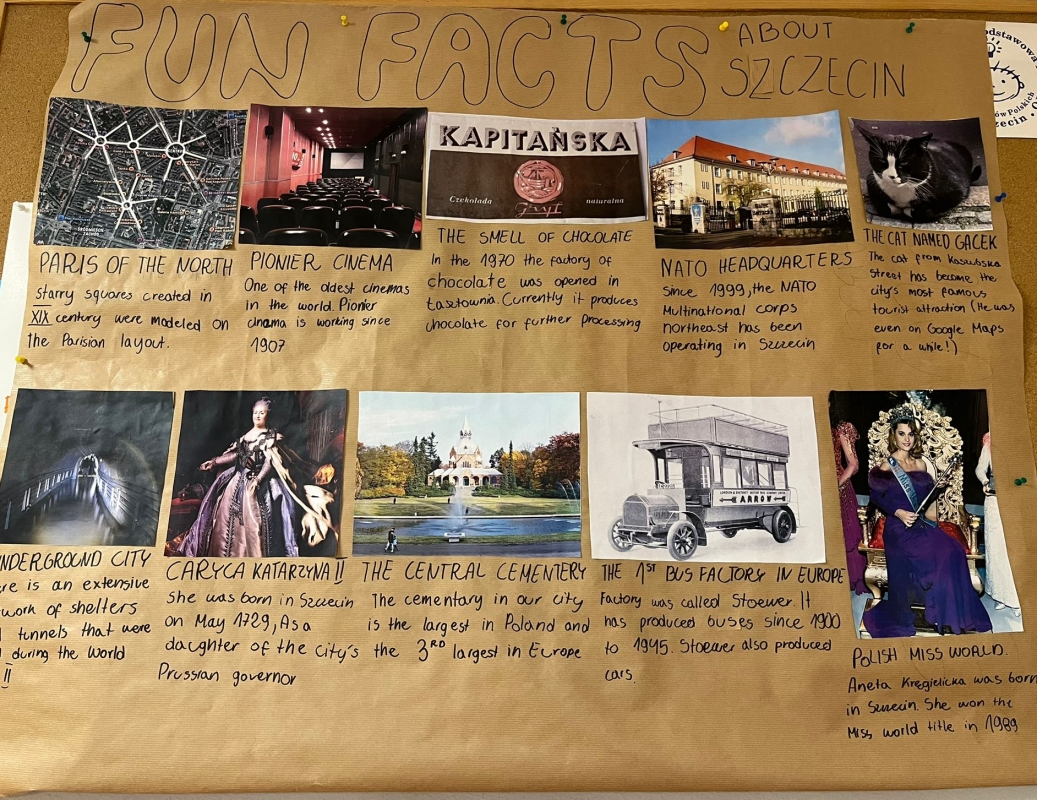 FUN FACTS ABOUT
SZCZECIN
odstawowa
ów Polskich
zecin
KAPITAŃSKA
Czekolada naturalna
PARIS OF THE NORTH
starry squares created in
XIX century were modeled on
the Parisian layout.
PIONIER CINEMA
One of the oldest cinemas
in the world. Pionier
cinama is working since
1907
THE SMELL OF CHOCOLATE
In the 1970 the factory of
chocolate was opened in
Łasztownia. Currently it produces
chocolate for further processing
NATO HEADQUARTERS
Since 1999, the NATO
Multinational corps
northeast has been
operating in Szczecin
THE CAT NAMED GACEK
The cat from Kaszubska
street has become the
city's most famous
tourist attraction (He was
even on Google Maps
for a while!)
NDERGROUND CITY
ere is an extensive
twork of shelters
tunnels that were
during the World
II
CARYCA KATARZYNA II
She was born in Szczecin
on May 1729, As a
daughter of the city's
Prussian governor
THE CENTRAL CEMENTERY
The cementary in our city
is the largest in Poland and
the 3RD largest in Europe
ARROW
THE 1ST BUS FACTORY IN EUROPE
Factory was called Stoewer. It
has produced buses since 1900
to 1945. Stoewer also produced
cars.
POLISH MISS WORLD.
Aneta Kręglicka was born
in Szczecin. She won the
Miss world title in 1989